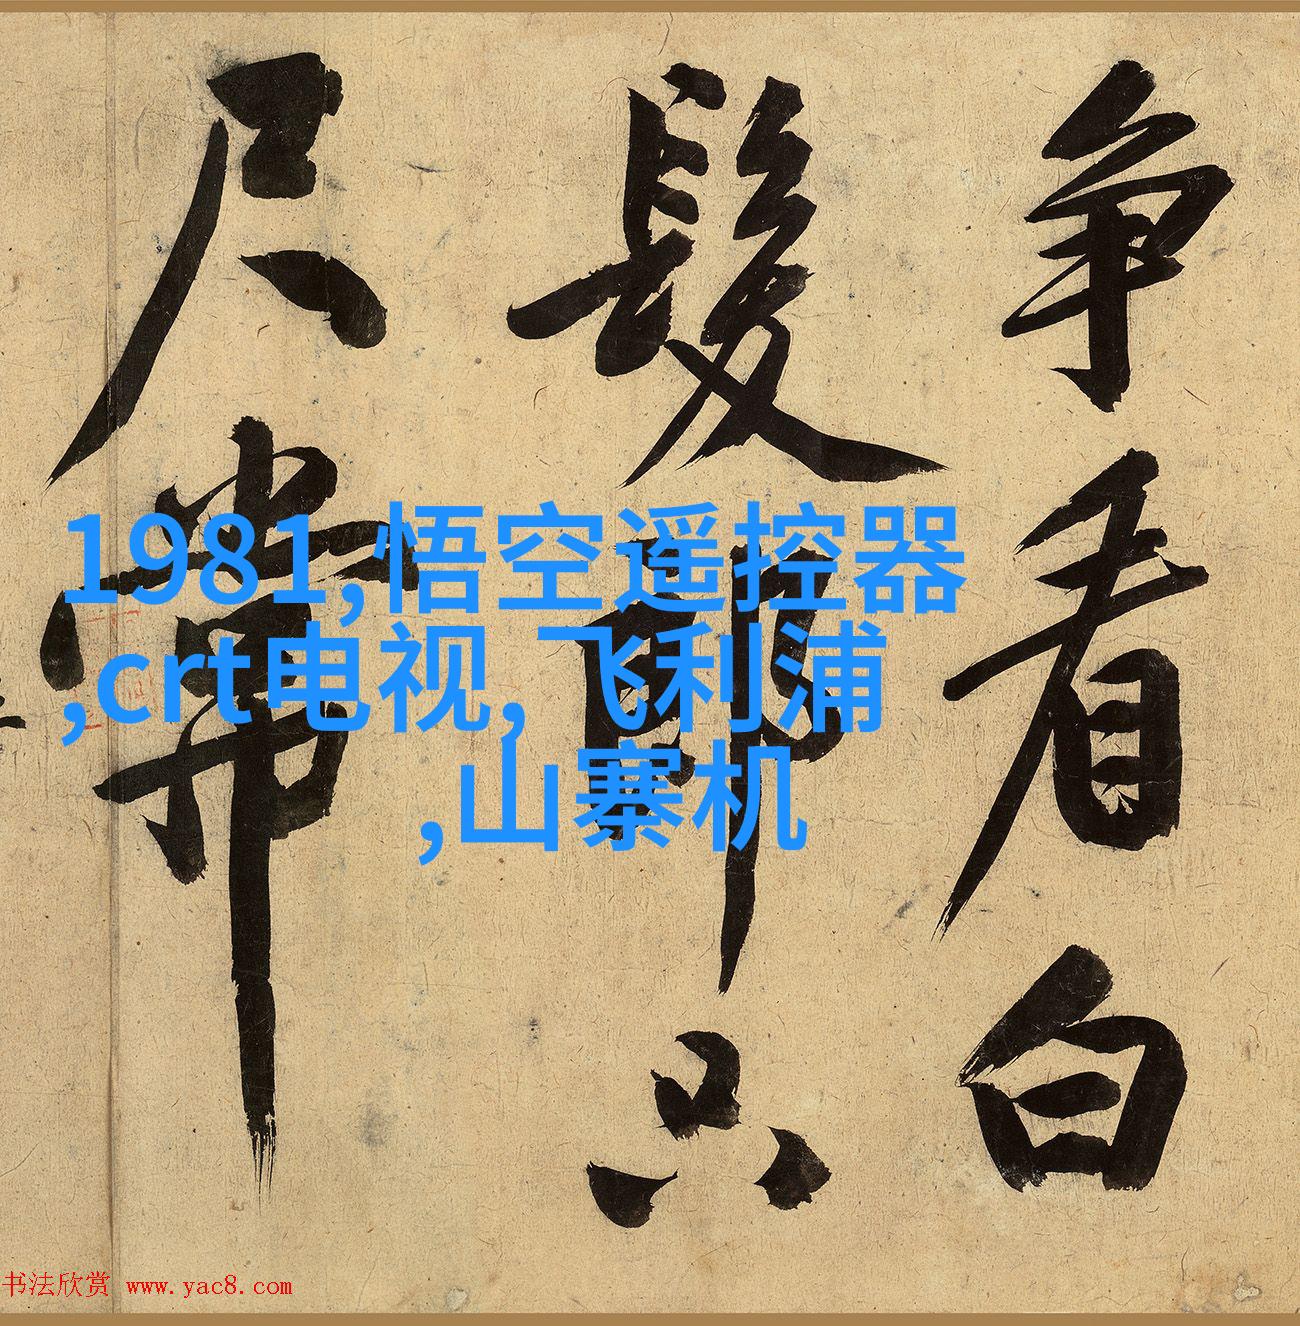 争看白
髮郎只
尺常
1981,悟空遥控器
,crt电视, 飞利浦
,山寨机
书法欣赏 www.yac8.com